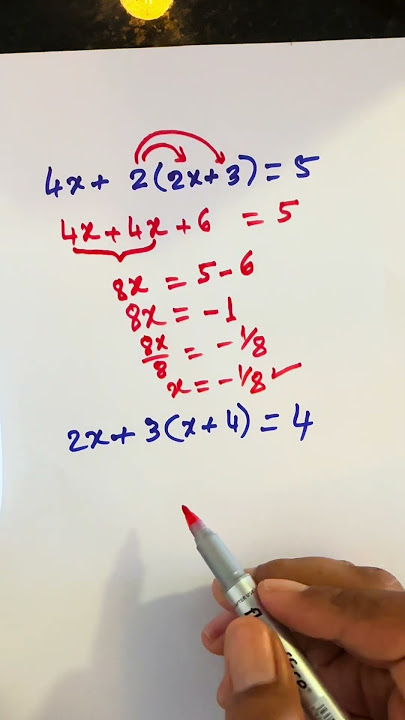 4x + 2(2x+3) = 5
4x + 4x + 6 = 5
8x = 5 - 6
8x = -1
8x/8 = -1/8
x = -1/8 ✓
2x + 3(x+4) = 4